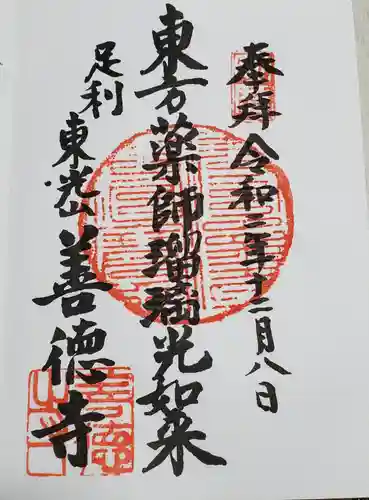 奉拝 令和二年十二月八日
東方薬師瑠璃光如来
足利
東光山 善徳寺